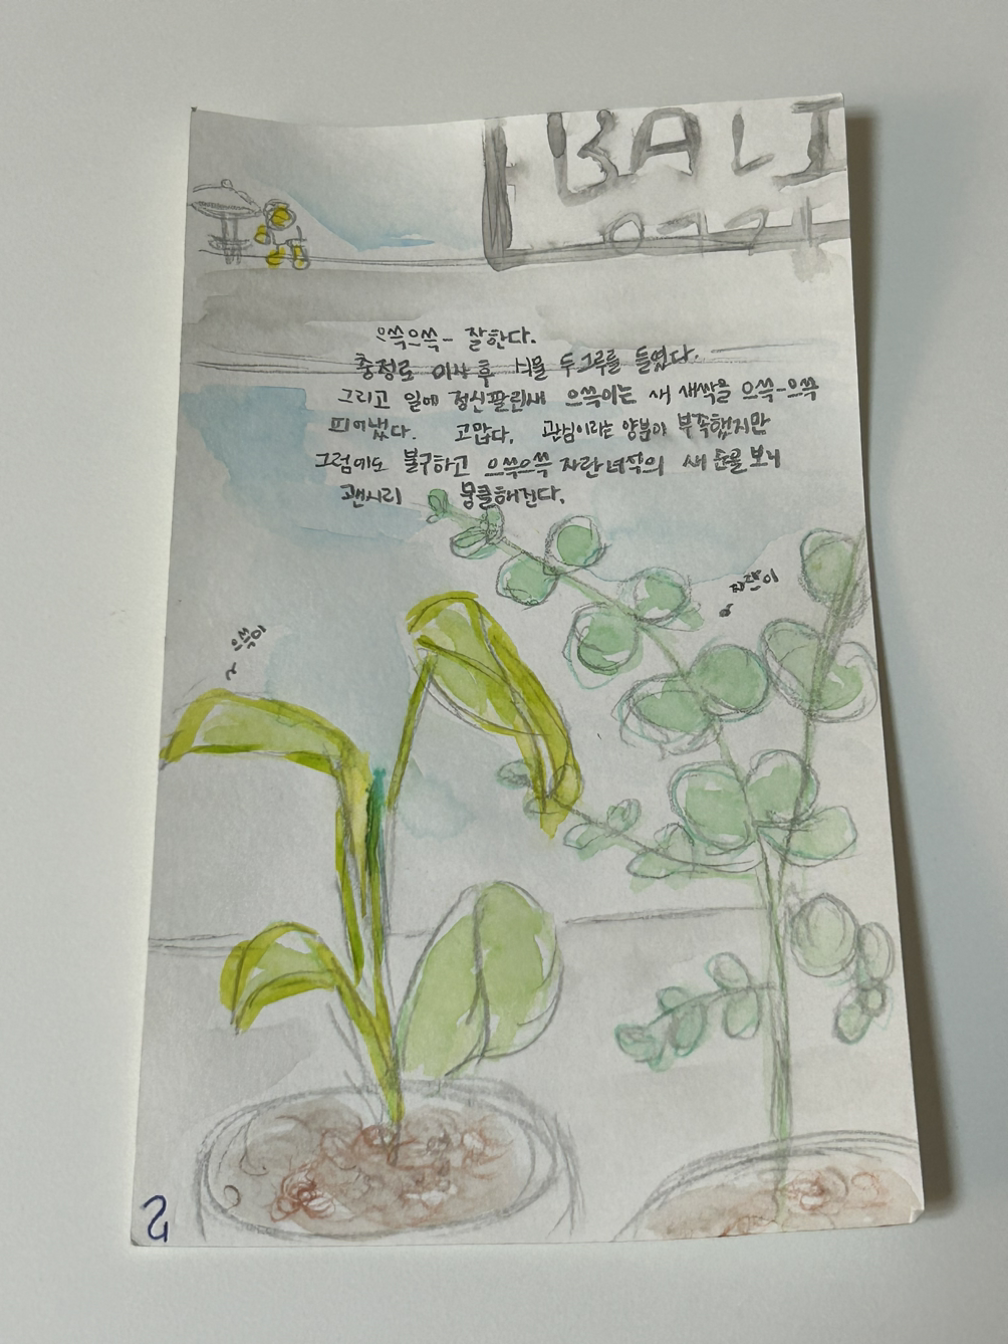 BALI
으쓱으쓱- 잘한다.
충정로 이사 후 식물 두그루를 들였다.
그리고 일에 정신팔린새 으쓱이는 새 새싹을 으쓱-으쓱
피어냈다. 고맙다. 관심이라는 양분이 부족했지만
그럼에도 불구하고 으쓱으쓱 자란 녀석의 새 순을 보니
괜시리 뭉클해진다.
자란이
으쓱이